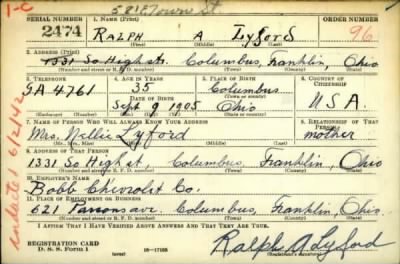 1-C
581 E Town St
SERIAL NUMBER 1. NAME (Print) ORDER NUMBER
2474 RALPH A Lyford 96
(First) (Middle) (Last)
2. ADDRESS (Print)
1331 So High st. Columbus, Franklin, Ohio
(Number and street or R. F. D. number) (Town) (County) (State)
3. TELEPHONE 4. AGE IN YEARS 5. PLACE OF BIRTH 6. COUNTRY OF CITIZENSHIP
GA 4761 35 Columbus
DATE OF BIRTH
Sept 9 1905 Ohio USA.
(Mo.) (Day) (Yr.) (State or country)
7. NAME OF PERSON WHO WILL ALWAYS KNOW YOUR ADDRESS 8. RELATIONSHIP OF THAT PERSON
Mrs. Nellie Lyford mother
(Mr., Mrs., Miss) (First) (Middle) (Last)
9. ADDRESS OF THAT PERSON
1331 So High st. Columbus, Franklin, Ohio
(Number and street or R. F. D. number) (Town) (County) (State)
10. EMPLOYER'S NAME
Bobb Chevrolet Co.
11. PLACE OF EMPLOYMENT OR BUSINESS
621 Parsons ave. Columbus, Franklin, Ohio.
(Number and street or R. F. D. number) (Town) (County) (State)
I AFFIRM THAT I HAVE VERIFIED ABOVE ANSWERS AND THAT THEY ARE TRUE.
REGISTRATION CARD
D. S. S. Form 1 16-17105
(over)
Ralph A Lyford
(Registrant's signature)
Inducted 6/2/42